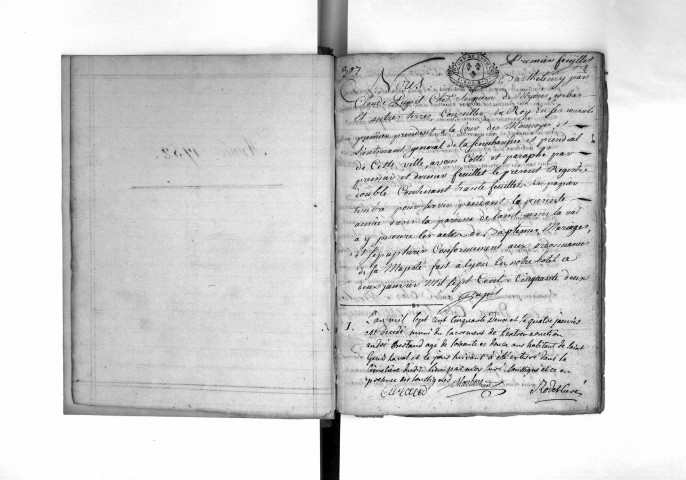 307
premier feuillet
Nous Barthelemy jean
Claude Pupil Chev. Seigneur de Myons, corbas
Et autres terres, Conseiller du Roy en ses conseils
premier president de la Cour des Monnoyes et
Lieutenant general de la senechaussée et presidial
de Cette ville, avons Cotté et paraphé par
premier et dernier feuillet le present Registre
double Contenant trente feuillets de papier
timbré pour servir pendant la presente
année dans la paroisse de Saint
a y inscrire les actes des Baptemes, Mariages,
et sepultures Conformement aux ordonnances
de sa Majesté fait a Lyon En notre hotel ce
deux janvier Mil Sept Cent Cinquante deux
Pupil
1. L'an mil sept cent cinquante Deux et le quatre janvier
est decedé muni du sacrement de L'extreme onction
andré agé de soixante et douze ans habitant de Saint
laval et le jour suivant a été enterré dans la
Cimetiere dudit lieu par moy curé soussigné et ce en
presence des soussignés
1752